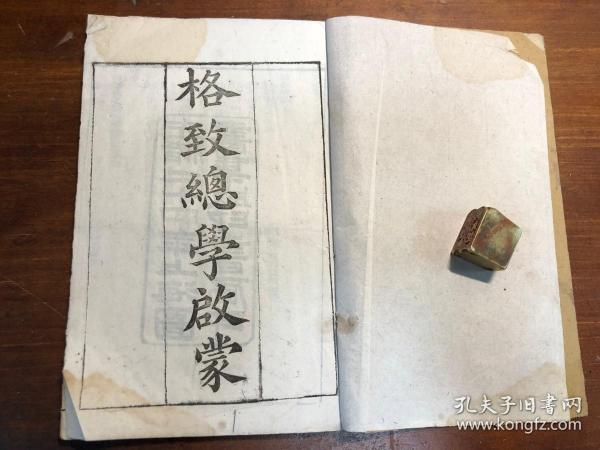 格致總學啟蒙
孔夫子旧书网
www.kongfz.com